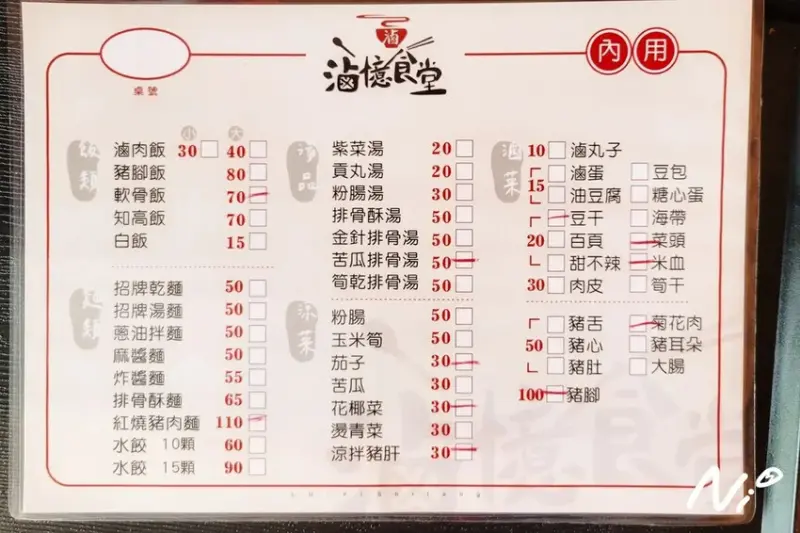 滷
滷憶食堂
內用
桌號
飯類
小 大
滷肉飯 30 40
豬腳飯 80
軟骨飯 70
知高飯 70
白飯 15
麵類
招牌乾麵 50
招牌湯麵 50
蔥油拌麵 50
麻醬麵 50
炸醬麵 55
排骨酥麵 65
紅燒豬肉麵 110
水餃 10顆 60
水餃 15顆 90
湯品
紫菜湯 20
貢丸湯 20
粉腸湯 30
排骨酥湯 50
金針排骨湯 50
苦瓜排骨湯 50
筍乾排骨湯 50
涼菜
粉腸 50
玉米筍 50
茄子 30
苦瓜 30
花椰菜 30
燙青菜 30
涼拌豬肝 30
滷菜
10 滷丸子
15
滷蛋 豆包
油豆腐 糖心蛋
20
豆干 海帶
百頁 菜頭
甜不辣 米血
30 肉皮 筍干
50
豬舌 菊花肉
豬心 豬耳朵
豬肚 大腸
100 豬腳
憶食堂
Ni